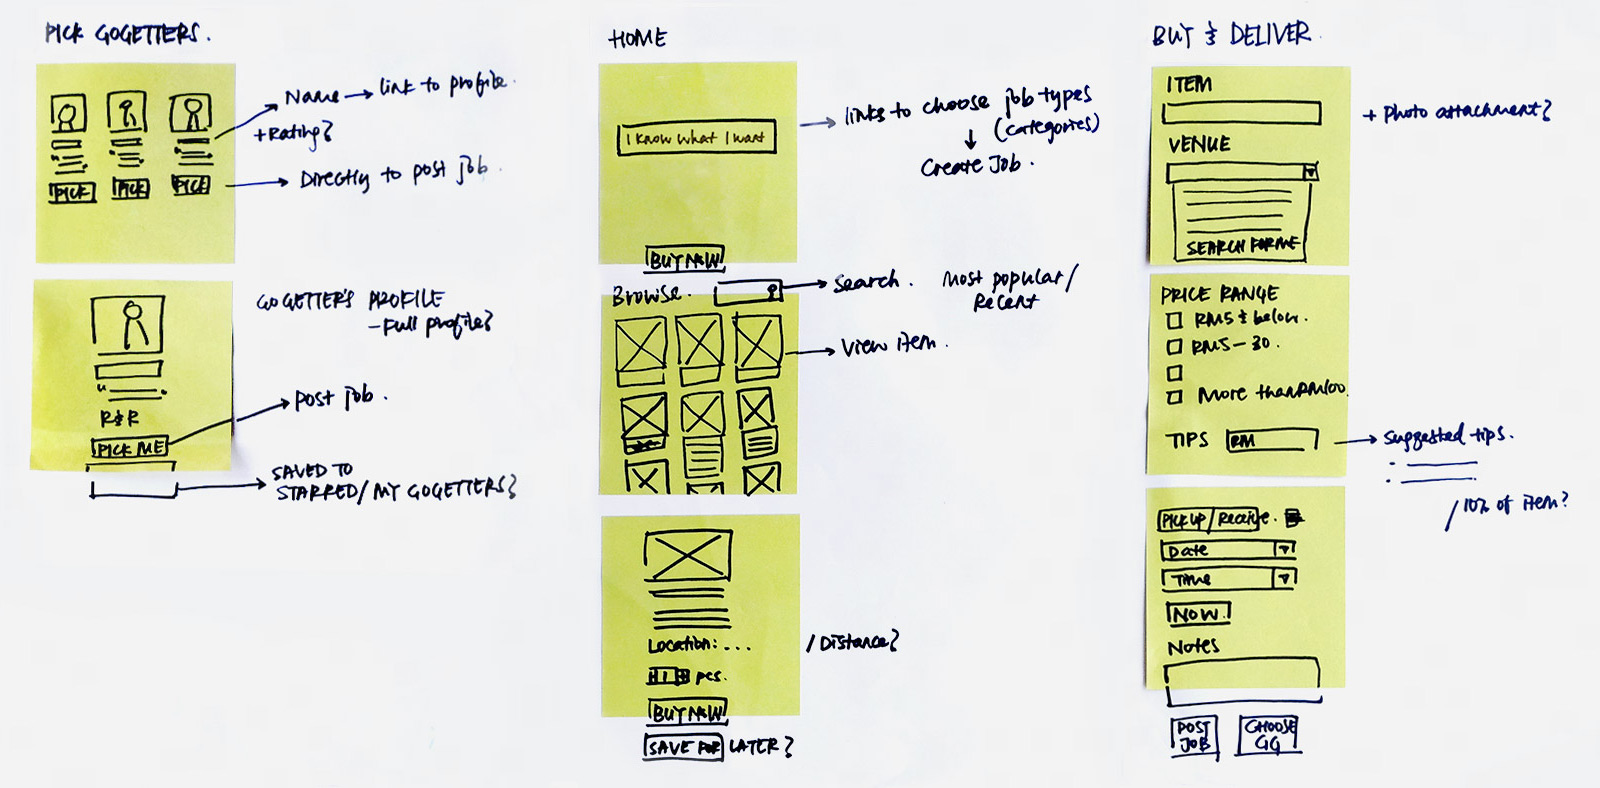 PICK GOGETTERS.
Name → link to profile.
+ Rating?
PICK PICK PICK
Directly to post job.
GOGETTER'S PROFILE
- Full profile?
R&R
PICK ME
Post job.
SAVED TO
STARRED/MY GOGETTERS?
HOME
I know what I want
links to choose job types
(categories)
Create Job.
BUY NOW
Browse.
Search.
Most popular/
Recent
View item.
Location: ...
/Distance?
1 pcs.
BUY NOW
SAVE FOR LATER?
BUY & DELIVER.
ITEM
+ Photo attachment?
VENUE
SEARCH FOR ME
PRICE RANGE
RM5 & below.
RM5 - 30.
More than RM100.
TIPS RM
Suggested tips.
/10% of item?
PICK UP/Receive.
Date
Time
NOW
Notes
POST
JOB
CHOOSE
GG